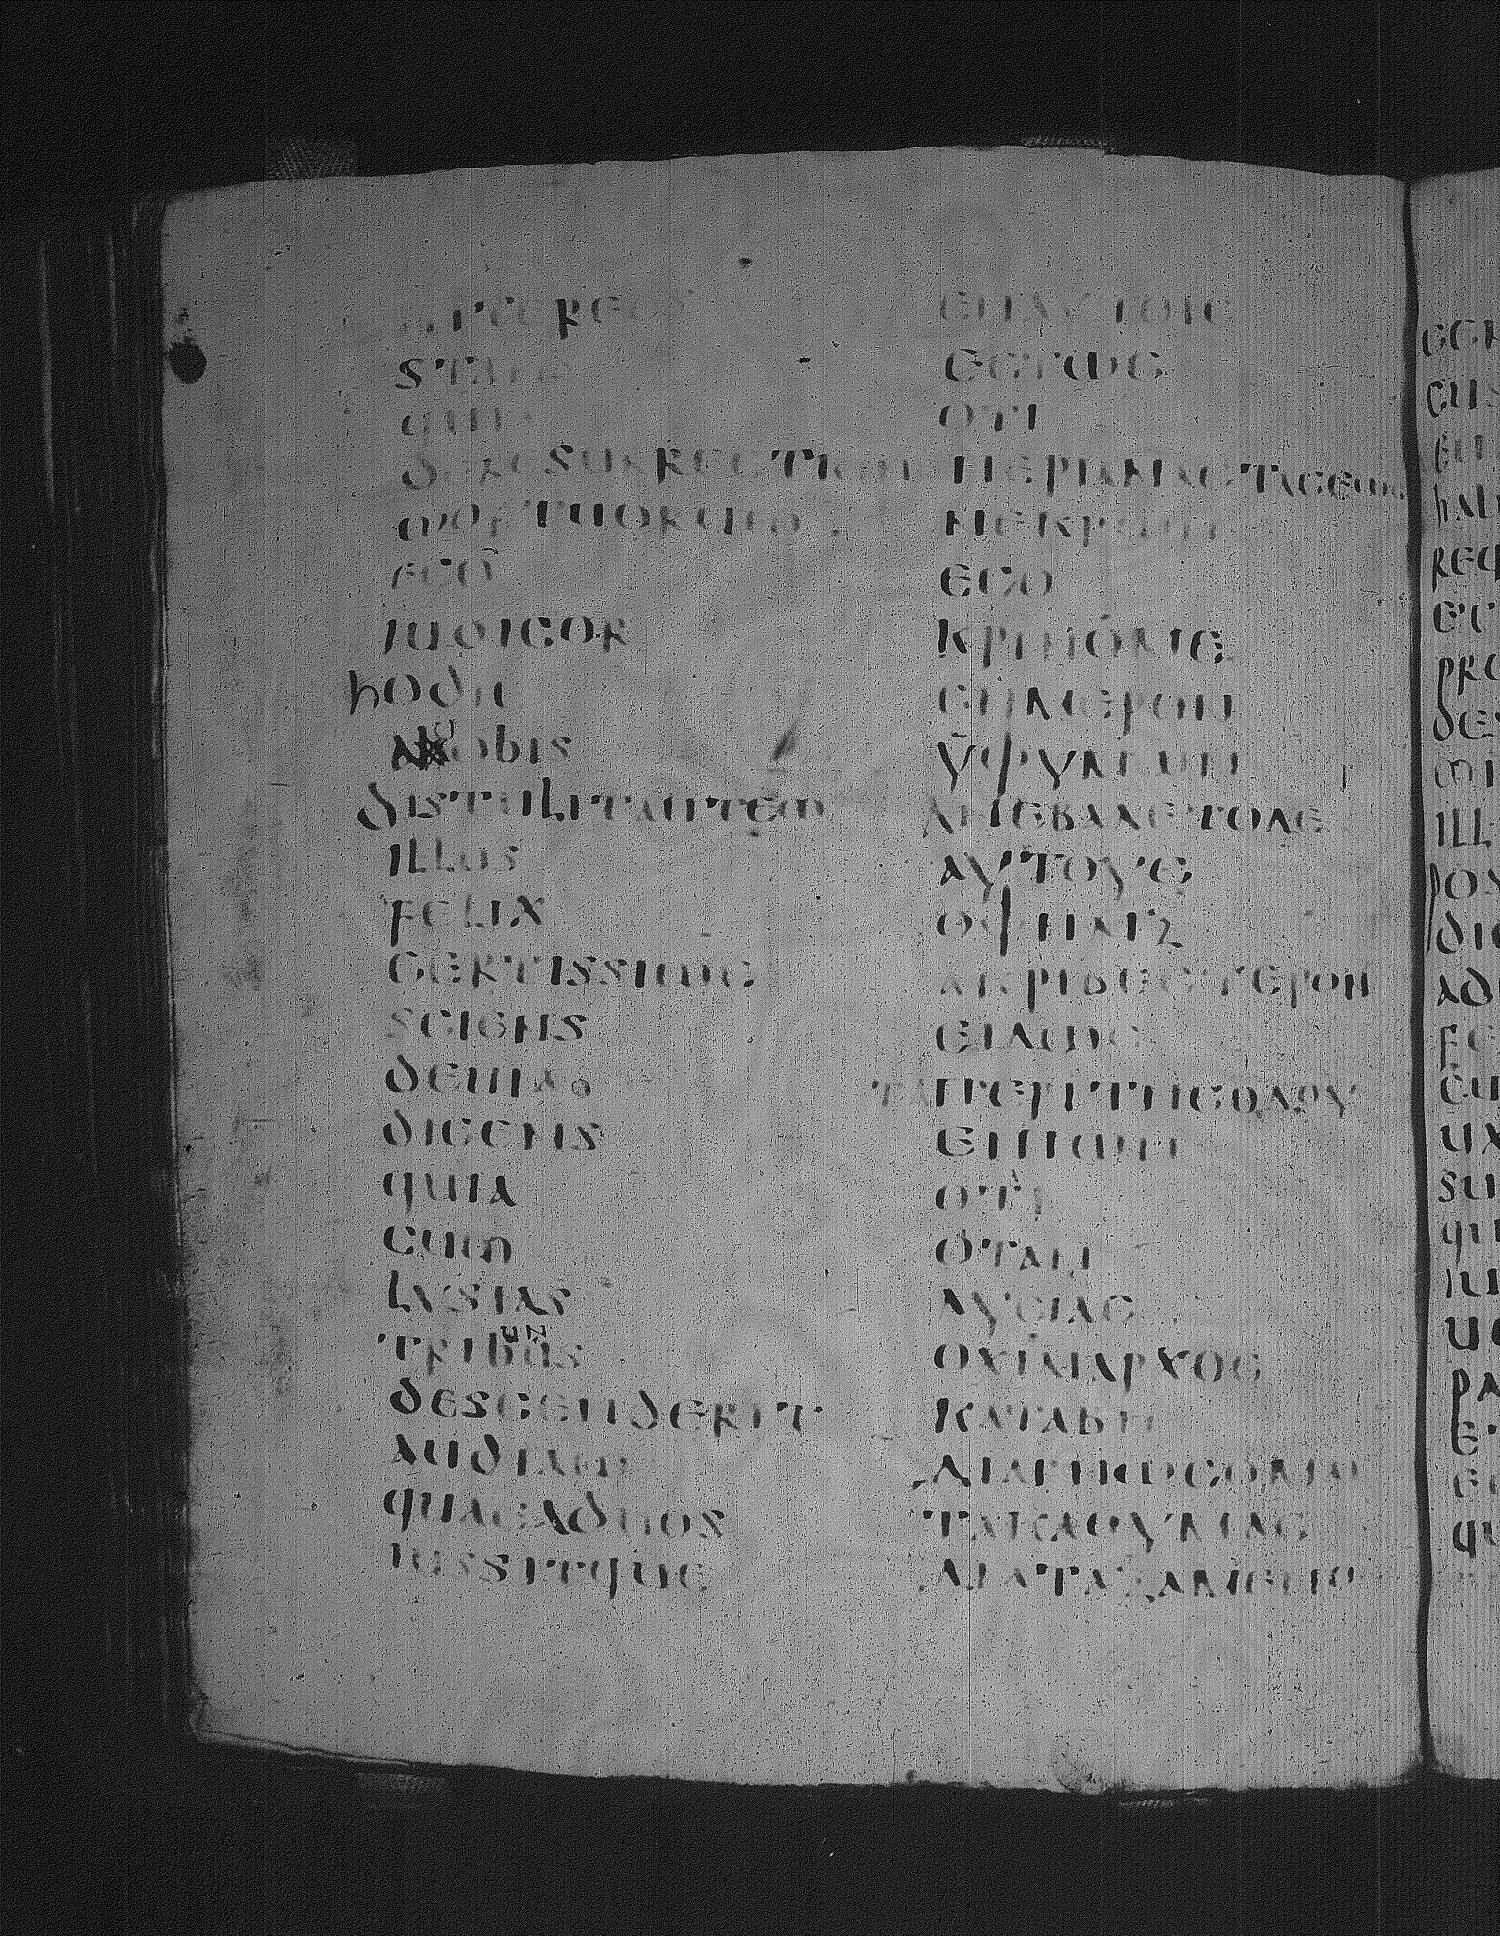 STANS
quia
deRESURRECTIONE
mORTUORUm
EGO
IUdICOR
hOdIE
AUObIS
dISTULITAUTEm
ILLOS
FELIX
CERTISSIME
SCIENS
dEUIA
dICENS
quIA
CUm
LYSIAS
TRIbUNUS
dESCENdERIT
AUdIAm
quAEAdUOS
IUSSITquE
ΕΝΑΥΤΟΙϹ
ΕϹΤΩϹ
ΟΤΙ
ΠΕΡΙΑΝΑϹΤΑϹΕΩϹ
ΝΕΚΡΩΝ
ΕΓΩ
ΚΡΙΝΟΜΕ
ϹΗΜΕΡΟΝ
ΥΦΥΜΩΝ
ΑΝΕΒΑΛΕΤΟΔΕ
ΑΥΤΟΥϹ
ΟΦΗΛΙΞ
ΑΚΡΙΒΕϹΤΕΡΟΝ
ΕΙΔΩϹ
ΤΑΠΕΡΙΤΗϹΟΔΟΥ
ΕΙΠΩΝ
ΟΤΙ
ΟΤΑΝ
ΛΥϹΙΑϹ
ΟΧΙΛΙΑΡΧΟϹ
ΚΑΤΑΒΗ
ΔΙΑΓΝΩϹΟΜΑΙ
ΤΑΚΑΘΥΜΑϹ
ΔΙΑΤΑΞΑΜΕΝΟϹ